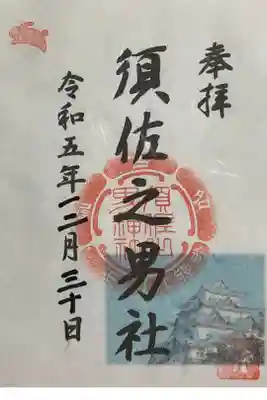 奉拝
須佐之男社
令和五年十二月三十日